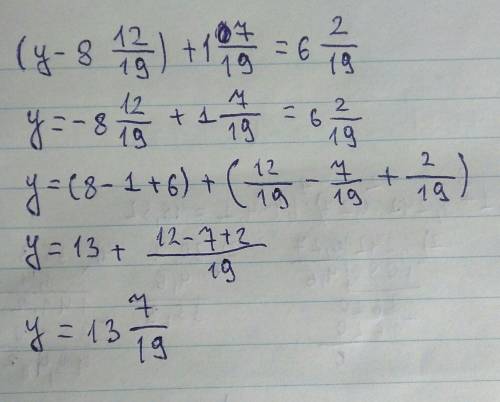 (y - 8 12/19) + 1 7/19 = 6 2/19
y = -8 12/19 + 1 7/19 = 6 2/19
y = (8 - 1 + 6) + (12/19 - 7/19 + 2/19)
y = 13 + (12 - 7 + 2)/19
y = 13 7/19